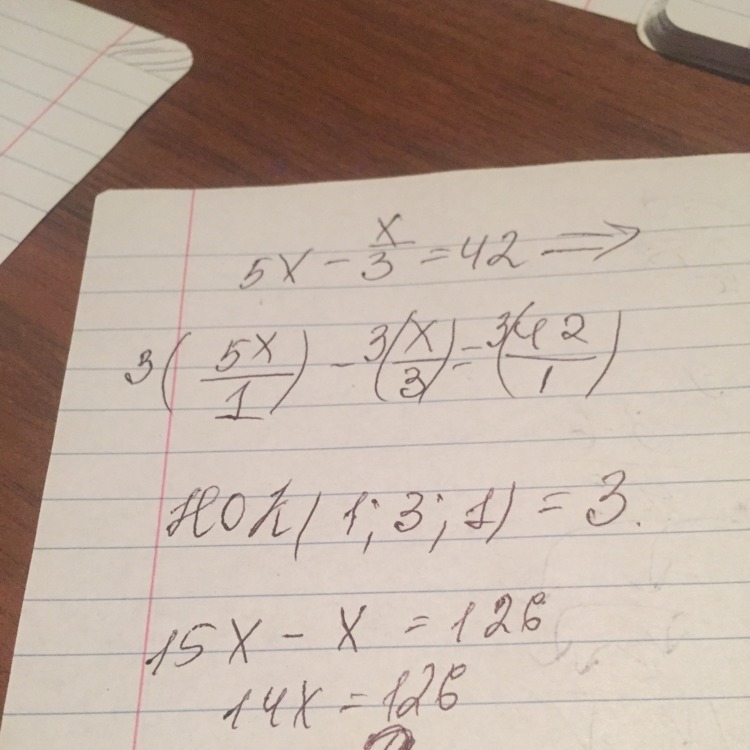 5x - x/3 = 42 ⟹
3(5x/1) - 3(x/3) = 3(42/1)
НОК(1; 3; 1) = 3.
15x - x = 126
14x = 126